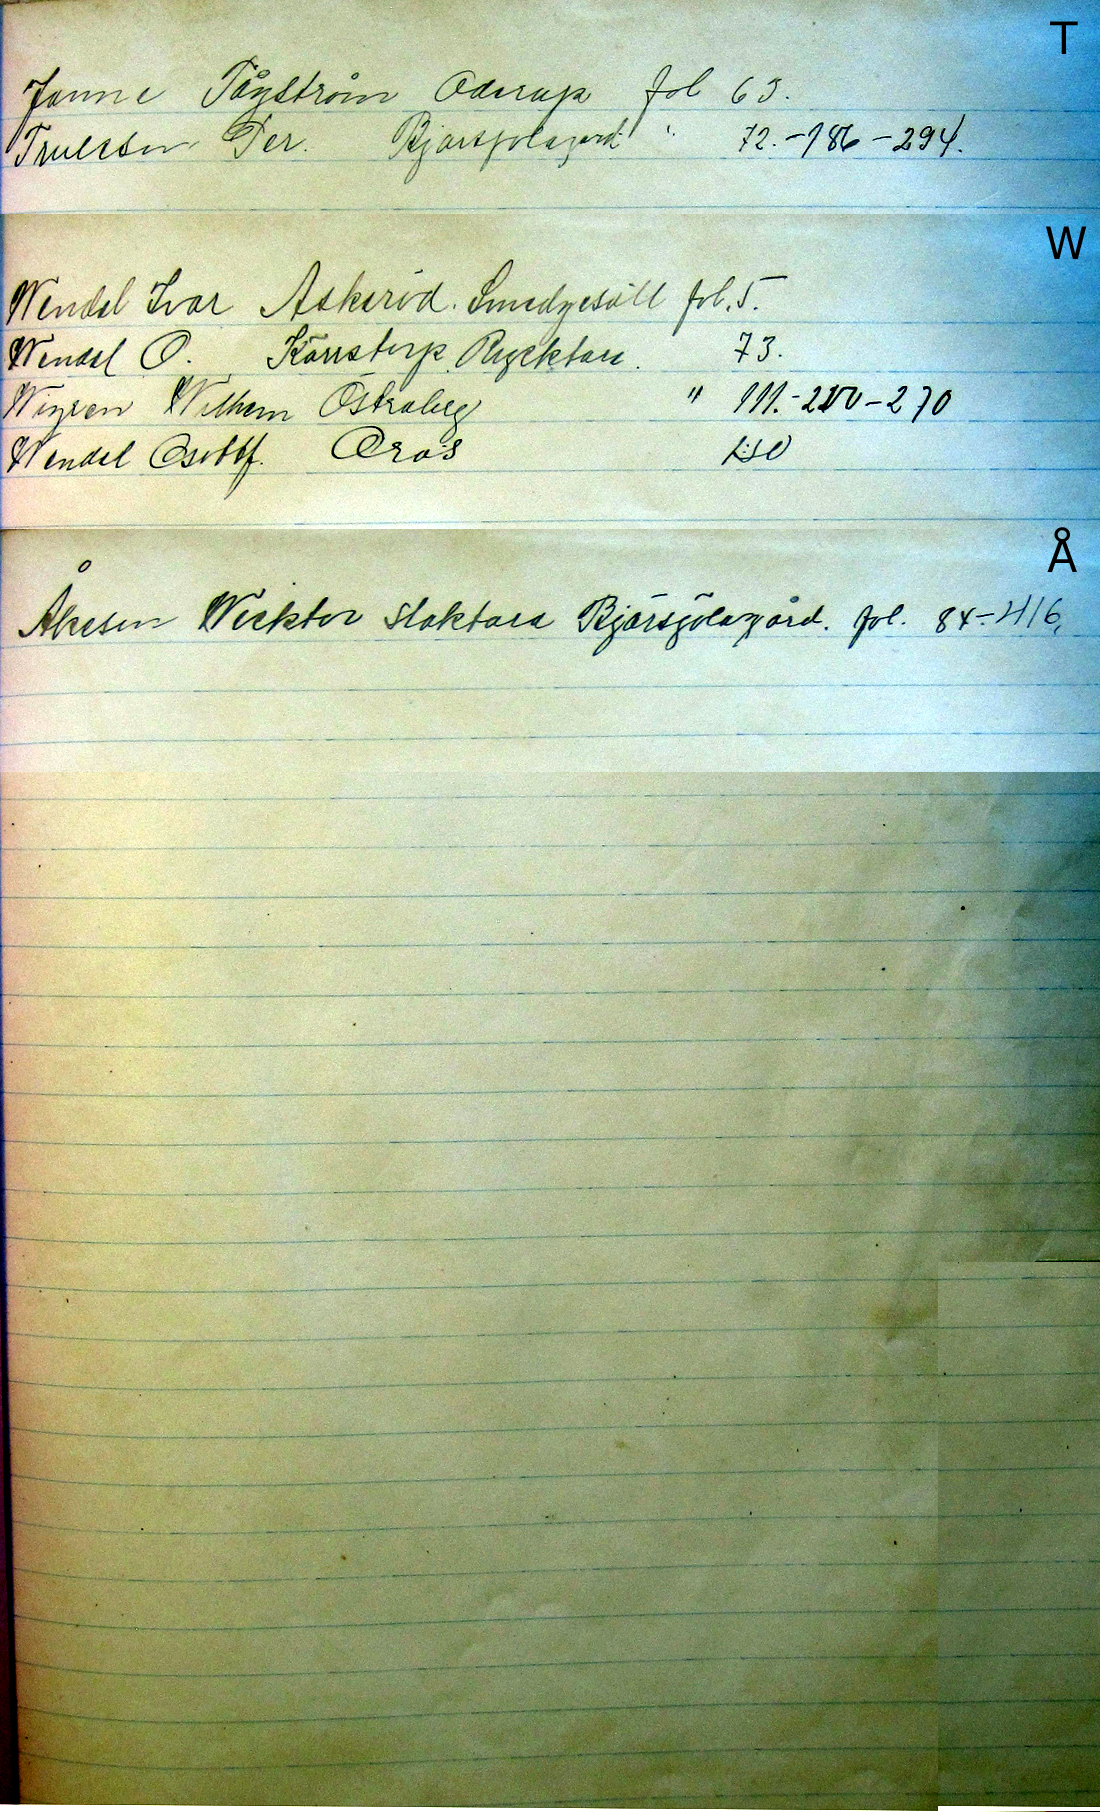 T
Janne Tågström Oderup fol 63.
Trulsson Per. Bjärsjölagård " 72.-186-294.
W
Wendel Ivar Askeröd. Smedgesäll fol. 5.
Wendel O. Karrstorp Ryktare. 73.
Wigren Wilhem Östraby " 111.-210-270
Wendel Oröd
Å
Åkeson Wicktor slaktare Bjärsjölagård. fol. 84-416,